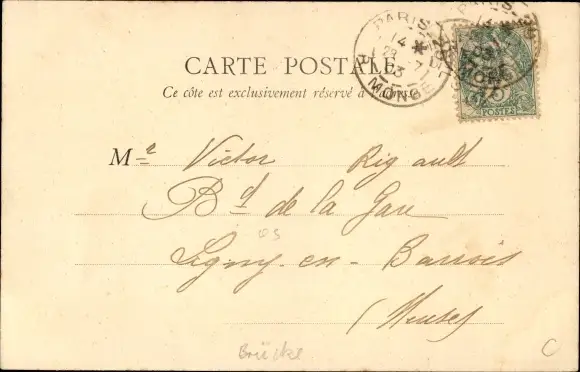 CARTE POSTALE
Ce côte est exclusivement réservé à l'adresse
PARIS
14 *
03
MONGE
POSTES
Mr Victor Rigault
Bd de la Gare
Ligny-en-Barrois
(Meuse)
Brücke
C